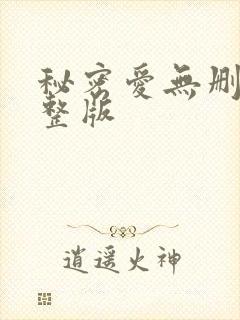 秘密爱無删
整版
逍遥火神